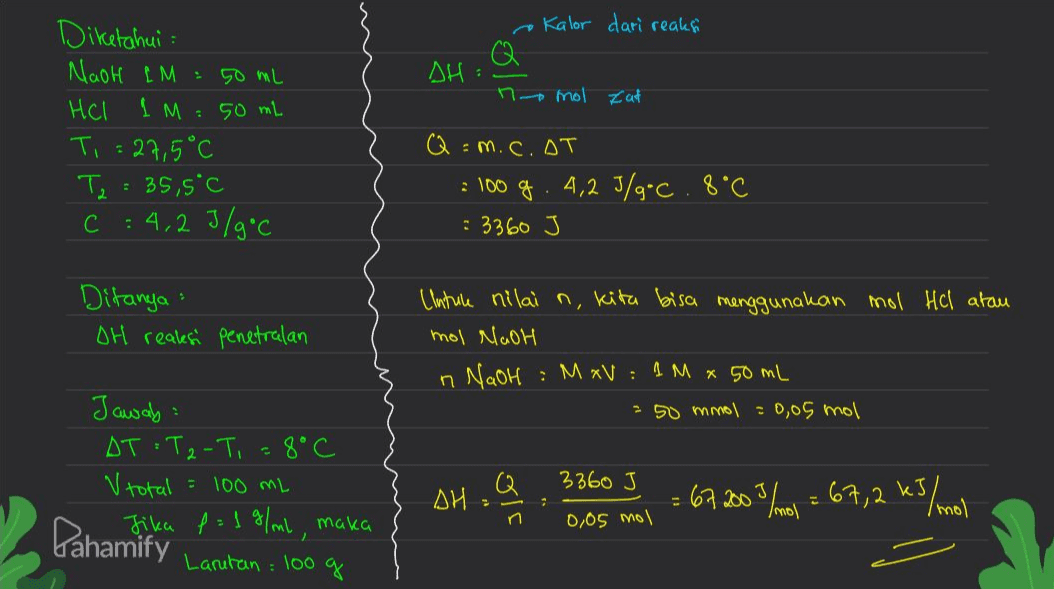 Diketahui :
NaOH 1 M = 50 mL
HCl 1 M = 50 mL
T₁ = 27,5°C
T₂ = 35,5°C
C = 4,2 J/g°C
Ditanya :
ΔH reaksi penetralan
Jawab :
ΔT = T₂ - T₁ = 8°C
V total = 100 mL
Jika ρ = 1 g/mL, maka
Larutan = 100 g
Pahamify
→ Kalor dari reaksi
ΔH = Q/n
→ mol zat
Q = m. C. ΔT
= 100 g . 4,2 J/g°C . 8°C
= 3360 J
Untuk nilai n, kita bisa menggunakan mol HCl atau
mol NaOH
n NaOH = M x V = 1 M x 50 mL
= 50 mmol = 0,05 mol
ΔH = Q/n = 3360 J / 0,05 mol = 67.200 J/mol = 67,2 kJ/mol